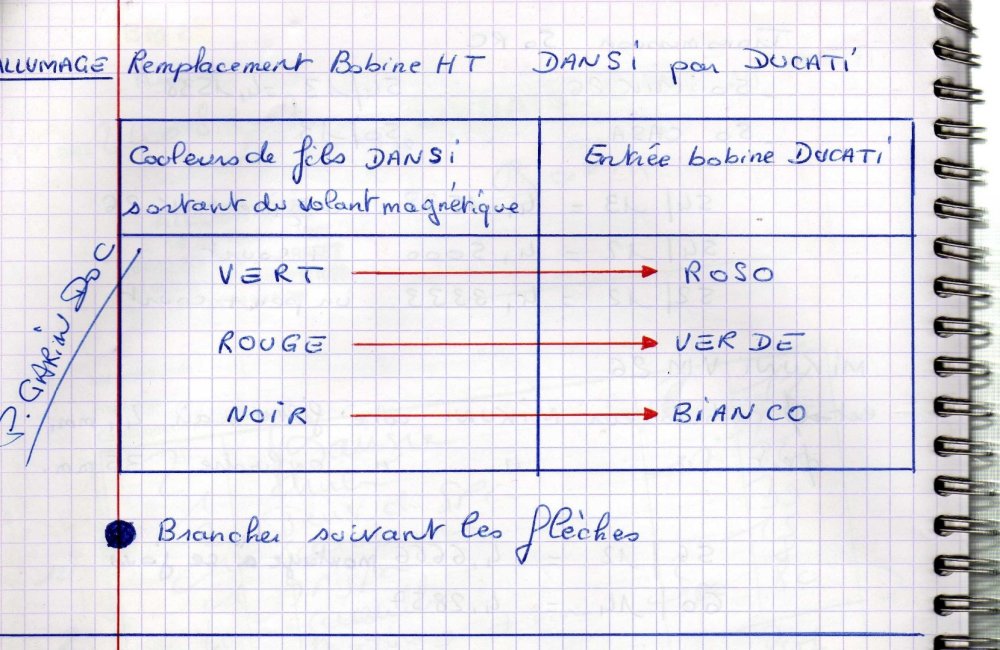 ALLUMAGE Remplacement Bobine HT DANSI par DUCATI
Couleurs de fils DANSI
sortant du volant magnétique
Entrée bobine DUCATI
VERT ROSO
ROUGE VERDE
NOIR BIANCO
GARIN DOC
Brancher suivant les flèches